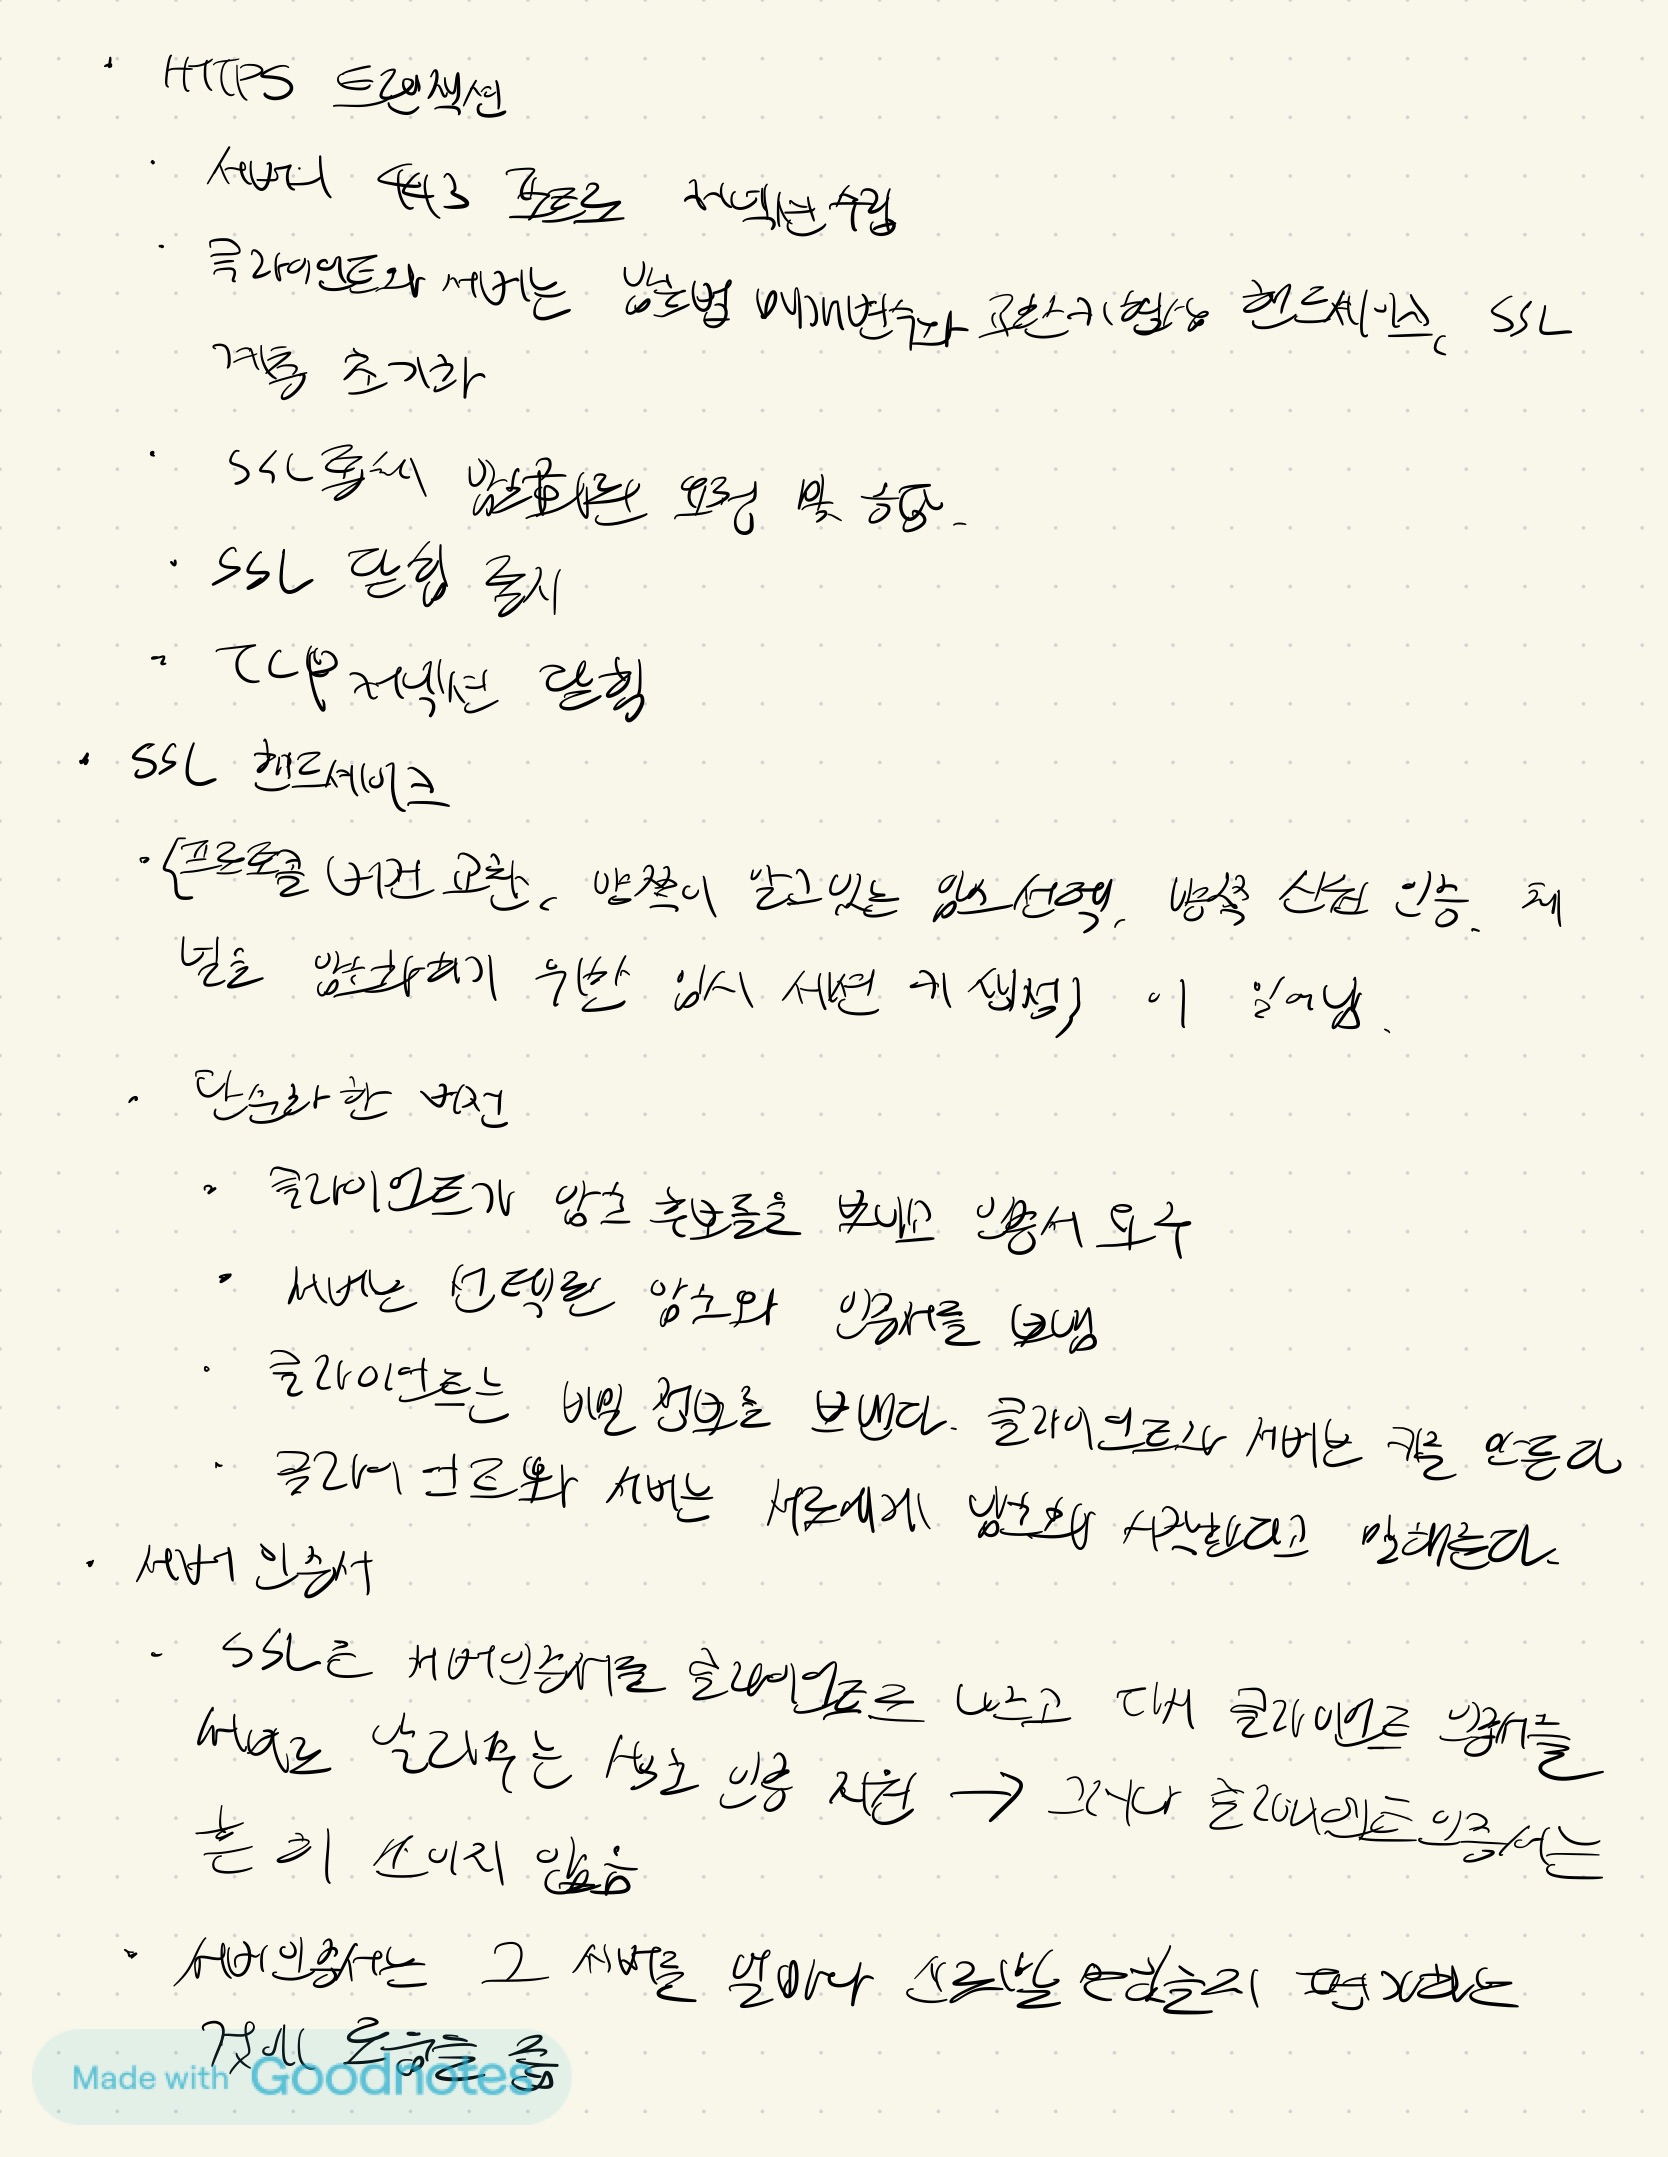 · HTTPS 트랜잭션
· 서버의 443 포트로 커넥션 수립
· 클라이언트와 서버는 암호법 매개변수와 교환키 협상 핸드셰이크, SSL
계층 초기화
· SSL을 통해 암호화된 요청 및 응답.
· SSL 닫힘 통지
- TCP 커넥션 닫힘
· SSL 핸드셰이크
· {프로토콜 버전 교환, 양쪽이 알고있는 암호 선택, 양쪽 신원 인증, 채
널을 암호화하기 위한 임시 세션 키 생성} 이 일어남.
· 단순화한 버전
· 클라이언트가 암호 후보들을 보내고 인증서 요구
· 서버는 선택된 암호와 인증서를 보냄
· 클라이언트는 비밀 정보를 보낸다. 클라이언트와 서버는 키를 만든다
· 클라이언트와 서버는 서로에게 암호화 시작한다고 말해준다.
· 서버 인증서
- SSL은 서버인증서를 클라이언트로 나르고 다시 클라이언트 인증서를
서버로 날라주는 상호 인증 지원 → 그러나 클라이언트 인증서는
흔히 쓰이지 않음
· 서버인증서는 그 서버를 얼마나 신뢰할 만한지 평가하는
것에 도움을 줌
Made with Goodnotes